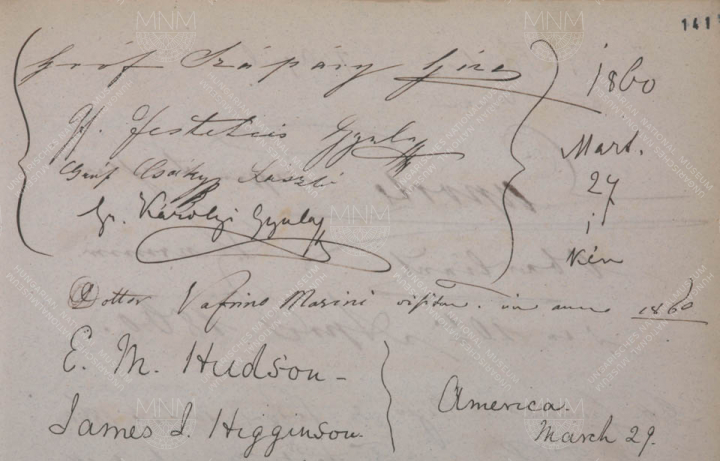 1411
Gróf Szápáry Géza
1860
Gf. Festetics Gyula
Mart.
Gróf Csáky László
27
Gr. Károlyi Gyula
i
kén
Dottor Marini visitar. in anno 1860
E. M. Hudson
James J. Higginson
America.
March 29.